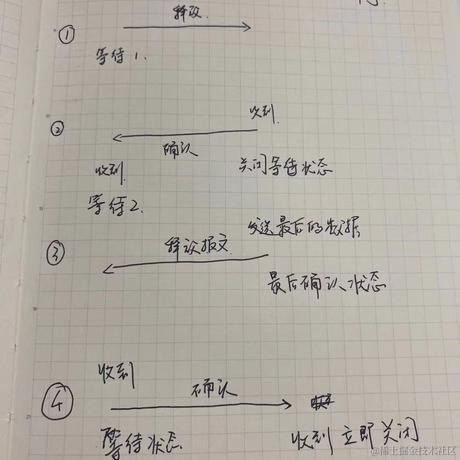 ① 释放
等待1.
② 收到
确认
收到 关闭等待状态
等待2.
发送最后的数据
③ 释放报文
最后确认状态
收到
④ 确认
等待状态 收到 立即关闭
@稀土掘金技术社区